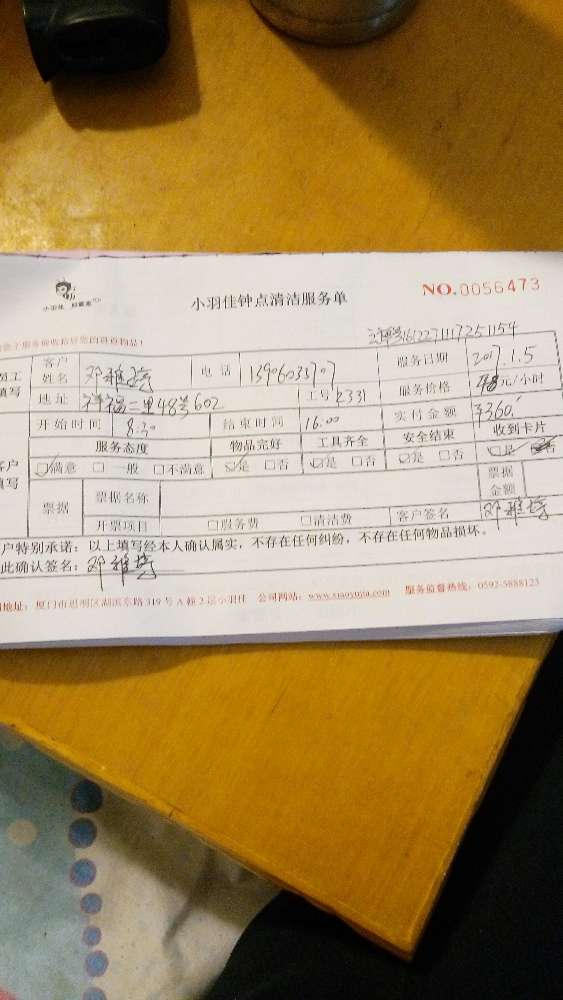 小羽佳
NO.0056473
小羽佳钟点清洁服务单
1612271117251154
员工填写 客户姓名 邓雅 电话 服务日期 2017.1.5
地址 祥福二里48号602 工号 2331 服务价格 48元/小时
开始时间 8:30 结束时间 16:00 实付金额 ¥360
客户填写 服务态度 物品完好 工具齐全 安全结束 收到卡片
☑满意 □一般 □不满意 ☑是 □否 ☑是 □否 ☑是 □否 ☑是
票据 票据名称 票据金额
开票项目 □服务费 □清洁费 客户签名 邓雅
户特别承诺:以上填写经本人确认属实,不存在任何纠纷,不存在任何物品损坏。
此确认签名:邓雅
地址:厦门市思明区湖滨东路319号A幢2层小羽佳 公司网站:www.xiaoyujia.com 服务监督热线:0592-5888123